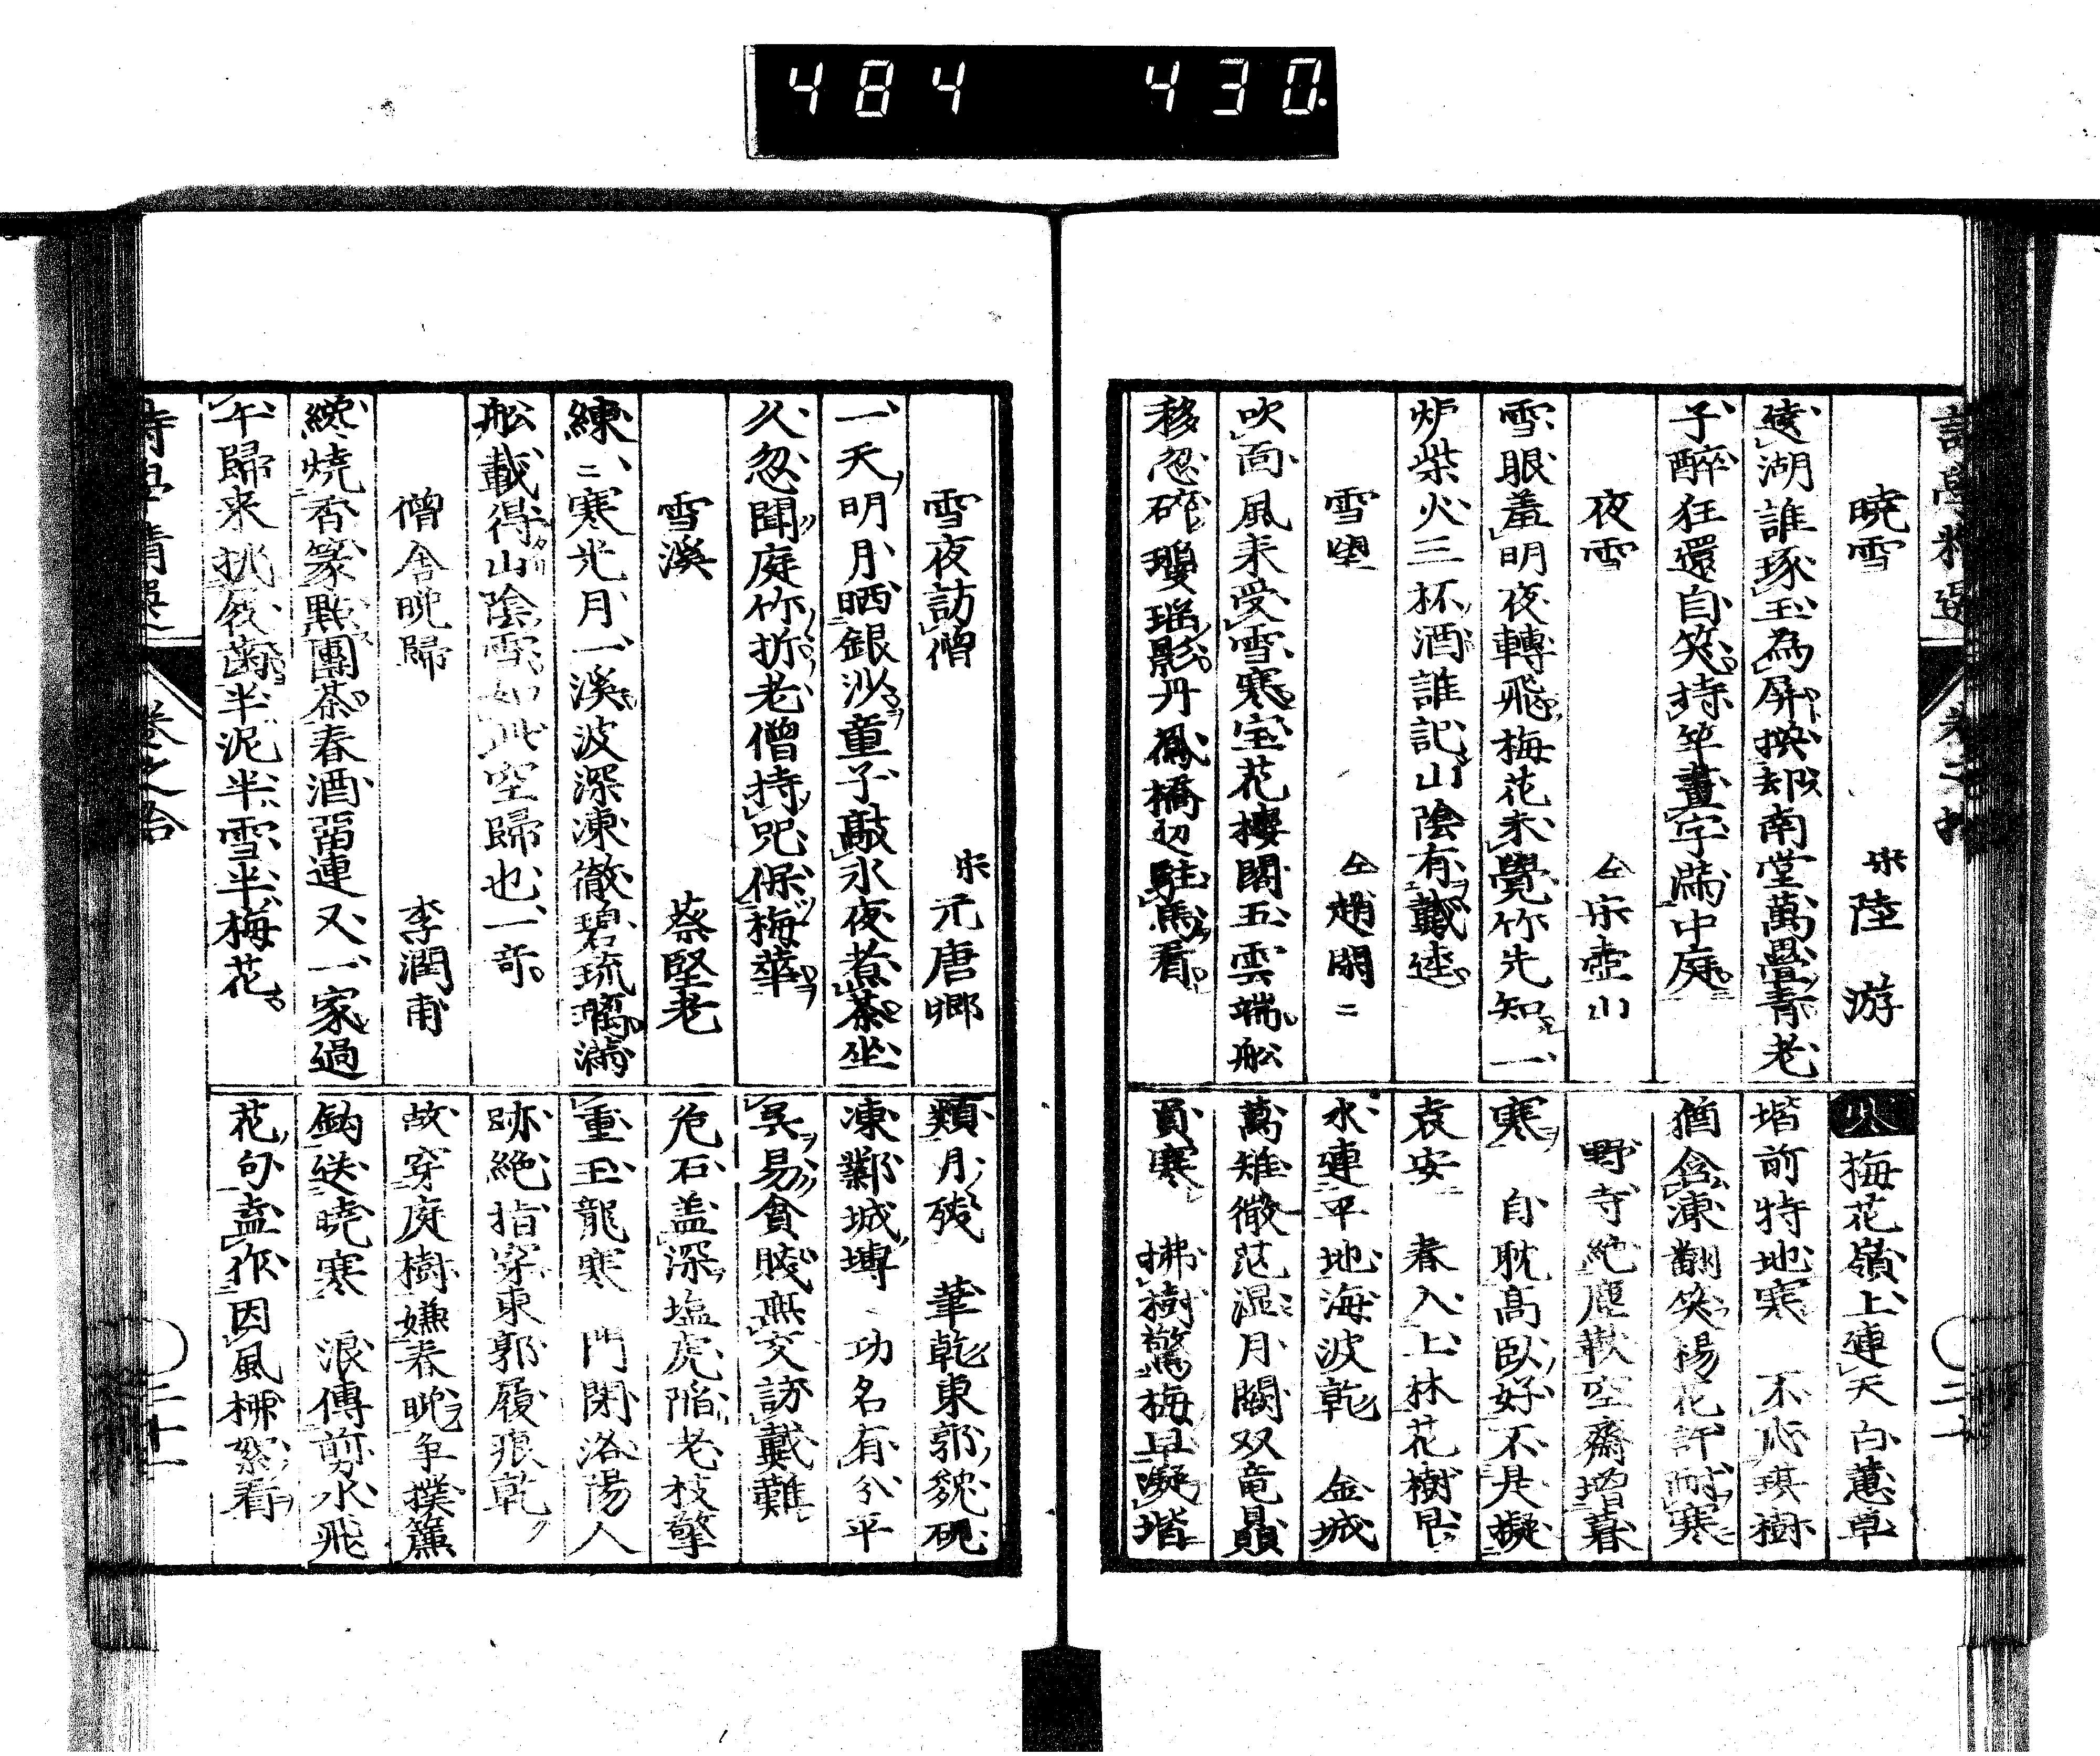 484 430.
暁雪 宋陸 游
遶湖誰琢玉為屏换却南堂萬疊青老
子醉狂還自笑持竿畫字満中庭
夜雪 仝宋壺山
雪眼羞明夜轉飛梅花未覺竹先知一
炉柴火三杯酒誰記山陰有戴逵
雪望 仝趙閒二
吹面風来受雪寒宝花樓閣五雲端船
移忽碎瓊瑶影丹鳳橋辺駐馬看
梅花嶺上連天白蕙草
堦前特地寒 不応琪樹
猶含凍翻笑楊花許耐寒
野寺絶塵歎空齋増暮
寒 自耽高臥好不是擬
袁安 春入上林花樹早
水連平地海波乾 金城
萬雉微茫湿月闕双竜贔
屓寒 拂樹驚梅早凝堦
雪夜訪僧 宋元唐卿
一天明月晒銀沙童子敲氷夜煮茶坐
久忽聞庭竹折老僧持咒保梅華
雪溪 蔡堅老
練二寒光月一溪波深凍徹碧琉璃満
船載得山陰雪如此空歸也一奇
僧舎晩歸 李潤甫
纔燒香篆點團茶春酒畱連又一家過
午歸来挑戗菌半泥半雪半梅花
類月残 筆乾東郭兔硯
凍鄴城塼 功名有分平
呉易貧賤無交訪戴難
危石盖深塩虎陷老枝擎
重玉龍寒 門閉洛陽人
跡絶指穿東郭履痕乾
故穿庭樹嫌春晩争撲簾
鈎送暁寒 浪傳剪水飛
花句盍作因風柳絮看
詩學精選 卷之拾 二十一